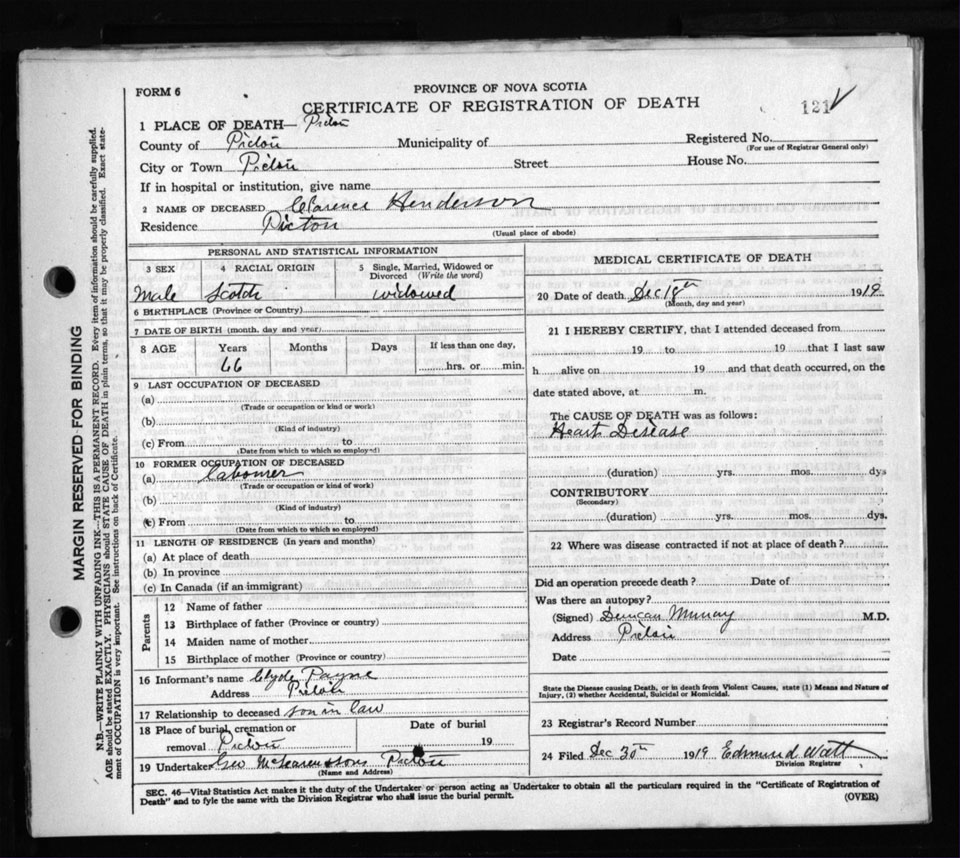 FORM 6
PROVINCE OF NOVA SCOTIA
CERTIFICATE OF REGISTRATION OF DEATH
121
1 PLACE OF DEATH— Pictou
County of Pictou Municipality of Registered No.
(For use of Registrar General only)
City or Town Pictou Street House No.
If in hospital or institution, give name
2 NAME OF DECEASED Clarence Henderson
Residence Pictou
(Usual place of abode)
PERSONAL AND STATISTICAL INFORMATION
3 SEX 4 RACIAL ORIGIN 5 Single, Married, Widowed or Divorced (Write the word)
Male Scotch widowed
6 BIRTHPLACE (Province or Country)
7 DATE OF BIRTH (month, day and year)
8 AGE Years Months Days If less than one day,
66 hrs. or min.
9 LAST OCCUPATION OF DECEASED
(a)
(Trade or occupation or kind or work)
(b)
(Kind of industry)
(c) From to
(Date from which to which so employed)
10 FORMER OCCUPATION OF DECEASED
(a) Labourer
(Trade or occupation or kind of work)
(b)
(Kind of industry)
(c) From to
(Date from which to which so employed)
11 LENGTH OF RESIDENCE (In years and months)
(a) At place of death
(b) In province
(c) In Canada (if an immigrant)
Parents
12 Name of father
13 Birthplace of father (Province or country)
14 Maiden name of mother
15 Birthplace of mother (Province or country)
16 Informant's name Clyde Payne
Address Pictou
17 Relationship to deceased son in law
18 Place of burial, cremation or removal Pictou
Date of burial
19
19 Undertaker Geo & sons Pictou
(Name and Address)
MEDICAL CERTIFICATE OF DEATH
20 Date of death Dec 18th 1919
(Month, day and year)
21 I HEREBY CERTIFY, that I attended deceased from
19 to 19 that I last saw
h alive on 19 and that death occurred, on the
date stated above, at m.
The CAUSE OF DEATH was as follows:
Heart Disease
(duration) yrs. mos. dys
CONTRIBUTORY
(Secondary)
(duration) yrs. mos. dys.
22 Where was disease contracted if not at place of death?
Did an operation precede death? Date of
Was there an autopsy?
(Signed) Duncan Murray M.D.
Address Pictou
Date
State the Disease causing Death, or in death from Violent Causes, state (1) Means and Nature of
Injury, (2) whether Accidental, Suicidal or Homicidal.
23 Registrar's Record Number
24 Filed Dec 30th 1919 Edmund Watt
Division Registrar
SEC. 46—Vital Statistics Act makes it the duty of the Undertaker or person acting as Undertaker to obtain all the particulars required in the "Certificate of Registration of
Death" and to fyle the same with the Division Registrar who shall issue the burial permit.
(OVER)
MARGIN RESERVED FOR BINDING
N.B.—WRITE PLAINLY WITH UNFADING INK.—THIS IS A PERMANENT RECORD. Every item of information should be carefully supplied.
AGE should be stated EXACTLY. PHYSICIANS should STATE CAUSE OF DEATH in plain terms, so that it may be properly classified. Exact state-
ment of OCCUPATION is very important. See instructions on back of Certificate.